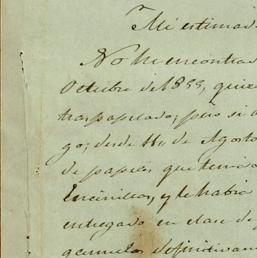 Mi estimad
No he encontrad
Octubre de 1855, quie
traspapelado; pero si a
go, desde 11 de Agosto
de papeles, que tenia
Encinillas, y le habia
entregado en clase de
definitivam